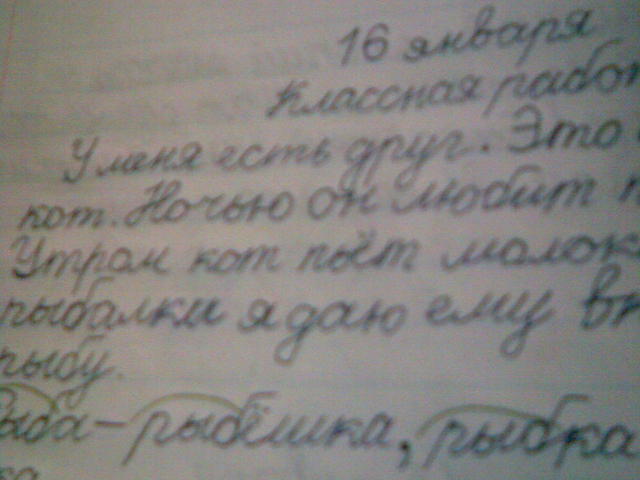 16 января
Классная
У меня есть друг. Это
кот. Ночью он любит
Утром кот пьёт
рыбалки я даю ему
рыбу.
Рыба – рыбёшка, рыбка